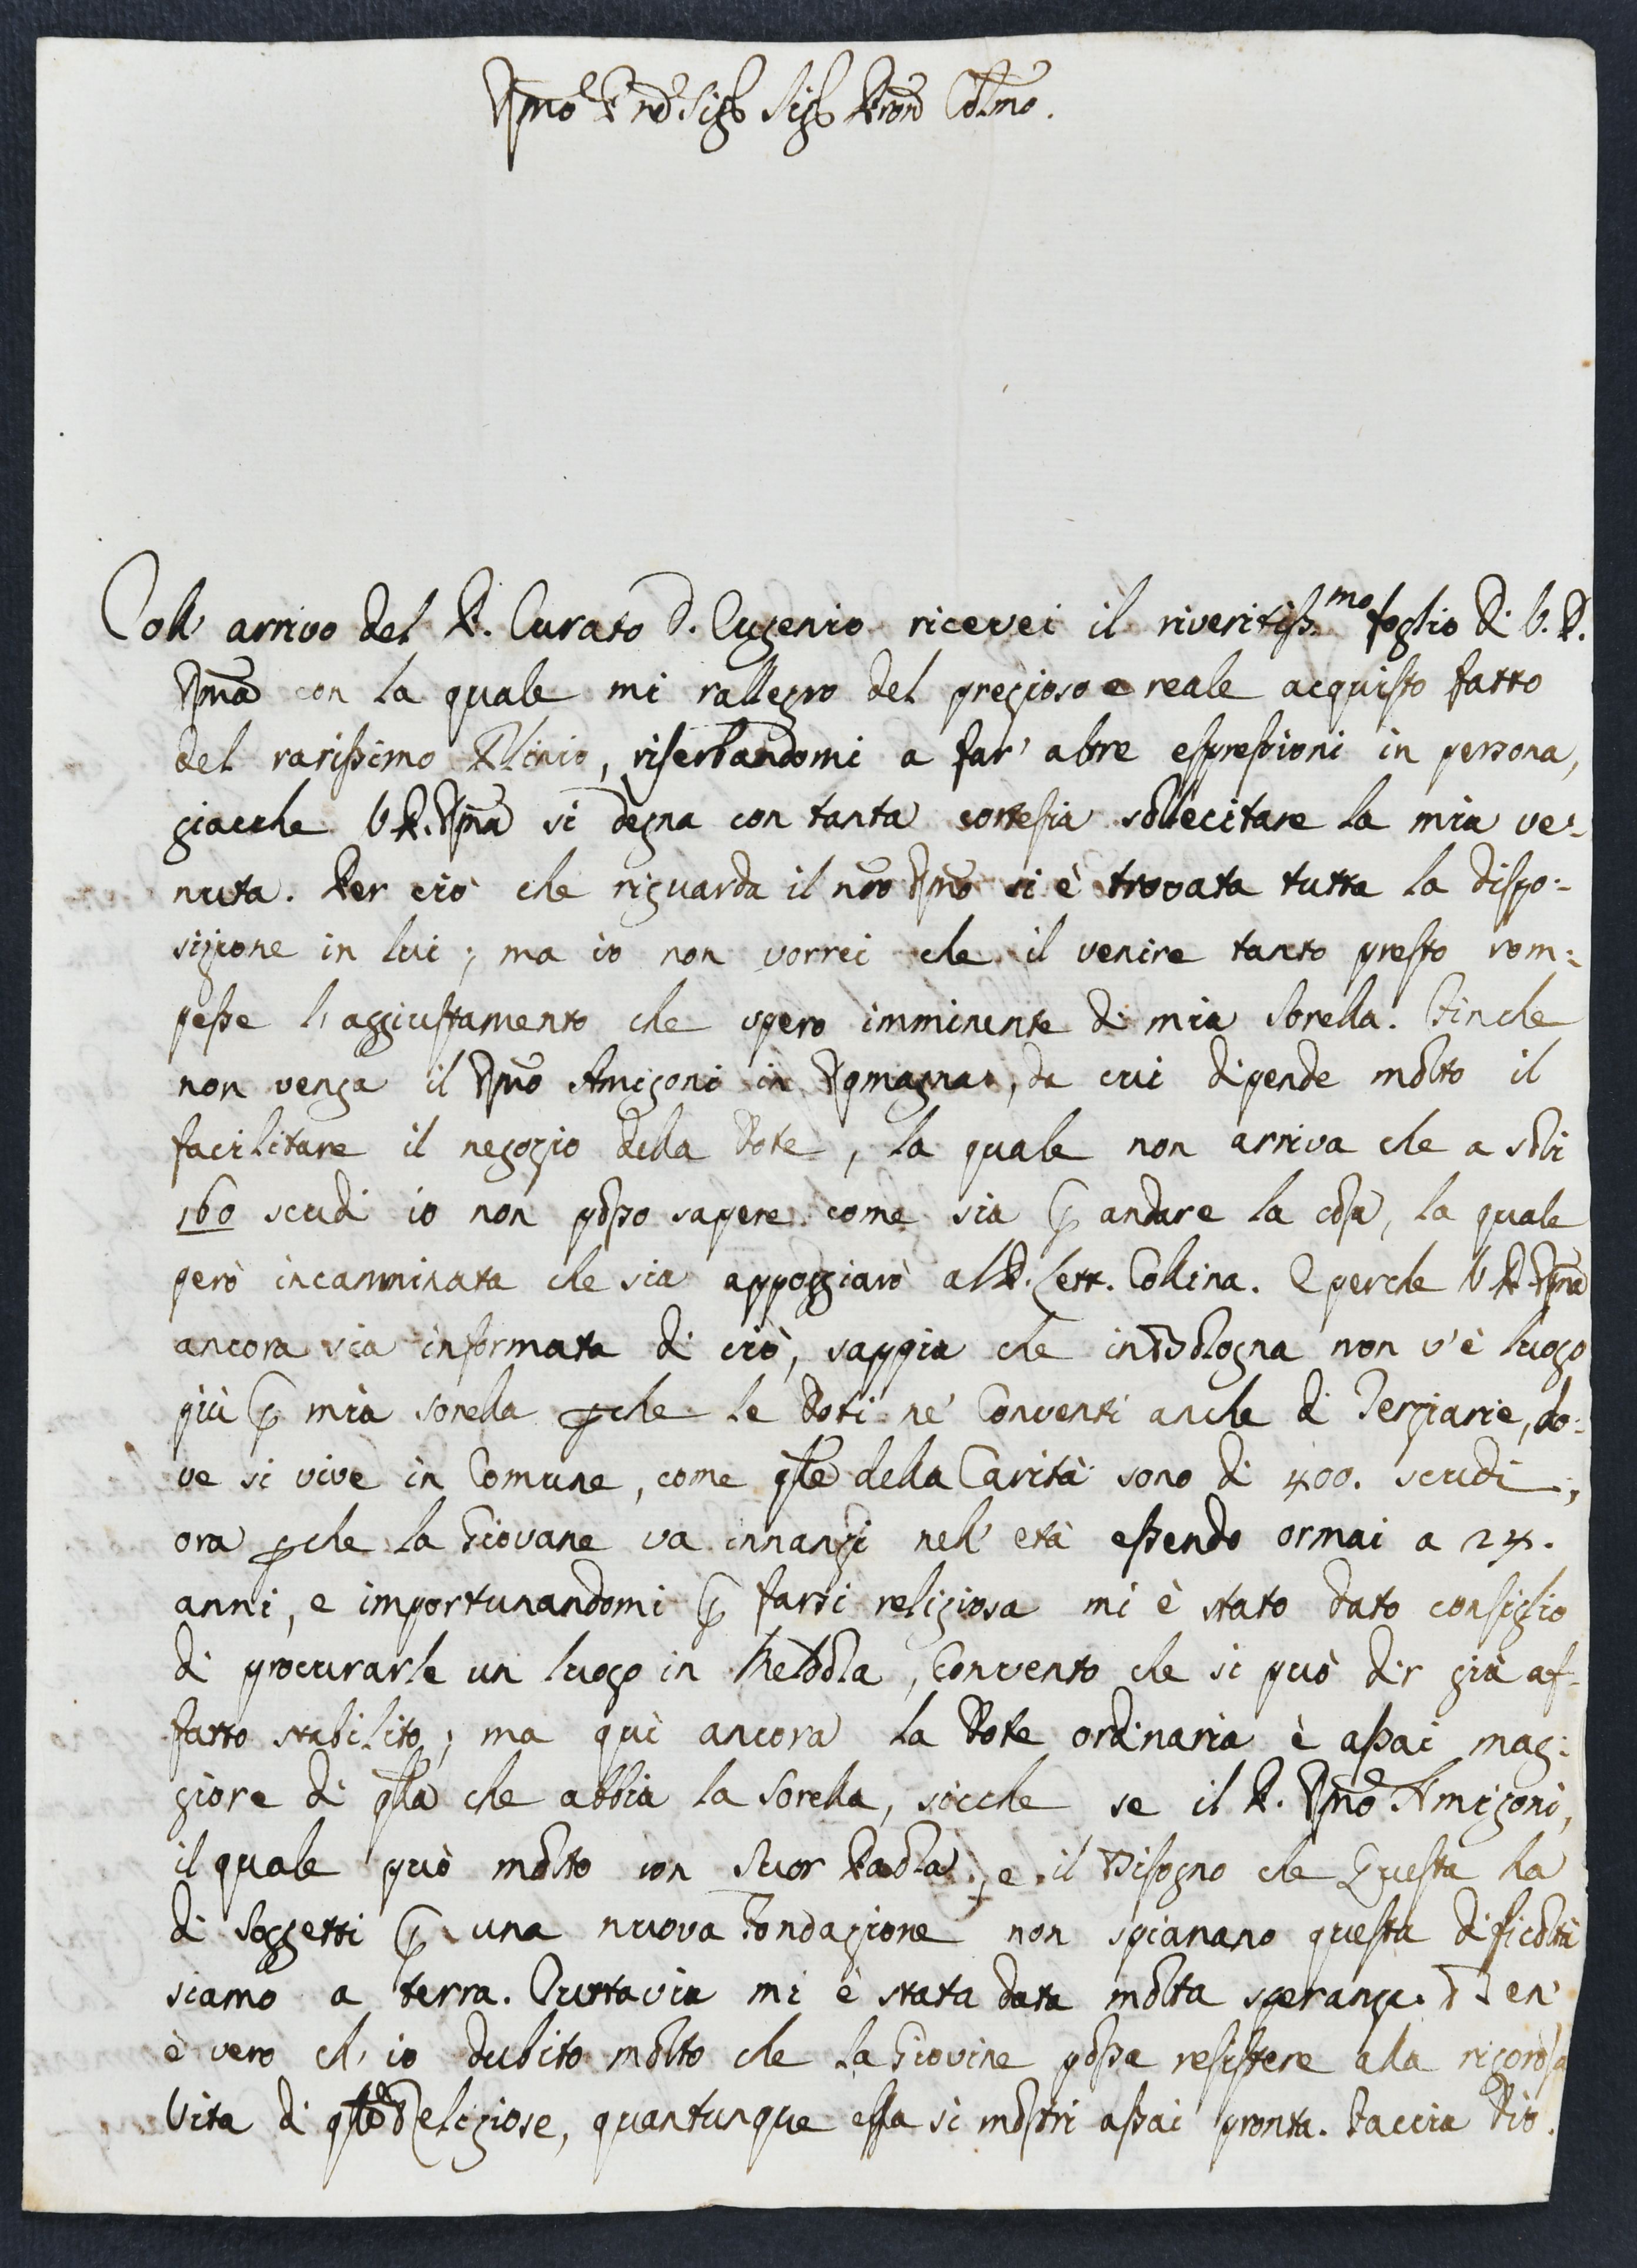 Rmo Pre Sigr Sigr Pron Colmo.
Coll' arrivo del P. Curato D. Eugenio ricevei il riveritiss.mo foglio di V. P.
Rma con la quale mi rallegro del prezioso e reale acquisto fatto
del rarissimo Plinio, riserbandomi a far' altre espressioni in persona,
giacche V. P. Rma si degna con tanta cortesia sollecitare la mia ve-
nuta. Per ciò che riguarda il nro Rmo si è trovata tutta la dispo-
sizione in lui; ma io non vorrei che il venire tanto presto rom-
pesse l'aggiustamento che spero imminente di mia Sorella. Finche
non venga il Rmo Amigoni in Romagna, da cui dipende molto il
facilitare il negozio della Dote, la quale non arriva che a soli
160 scudi io non posso sapere come sia p andare la cosa, la quale
però incamminata che sia appoggiarò al P. Lett. Collina. E perche V. P. Rma
ancora sia informata di ciò, sappia che in Bologna non v'è luogo
più p mia sorella pche le Doti ne' Conventi anche di Terziarie, do-
ve si vive in Comune, come qlle della Carità sono di 400. scudi;
ora pche la Giovane va innanzi nell' età essendo ormai a 24.
anni, e importunandomi p farsi religiosa mi è stato dato consiglio
di procurarle un luogo in Meldola, Convento che si può dir già af-
fatto stabilito; ma quì ancora la Dote ordinaria è assai mag-
giore di qlla che abbia la Sorella, sicche se il P. Rmo Amigoni,
il quale può molto con Suor Paola, e il Bisogno che Questa ha
di Soggetti p una nuova Fondazione non spianano questa dificoltà
siamo a terra. Tuttavia mi è stata data molta speranza. Ben'
è vero ch' io dubito molto che la Giovine possa resistere alla rigorosa
Vita di qlle Religiose, quantunque essa si mostri assai pronta. Faccia Dio.